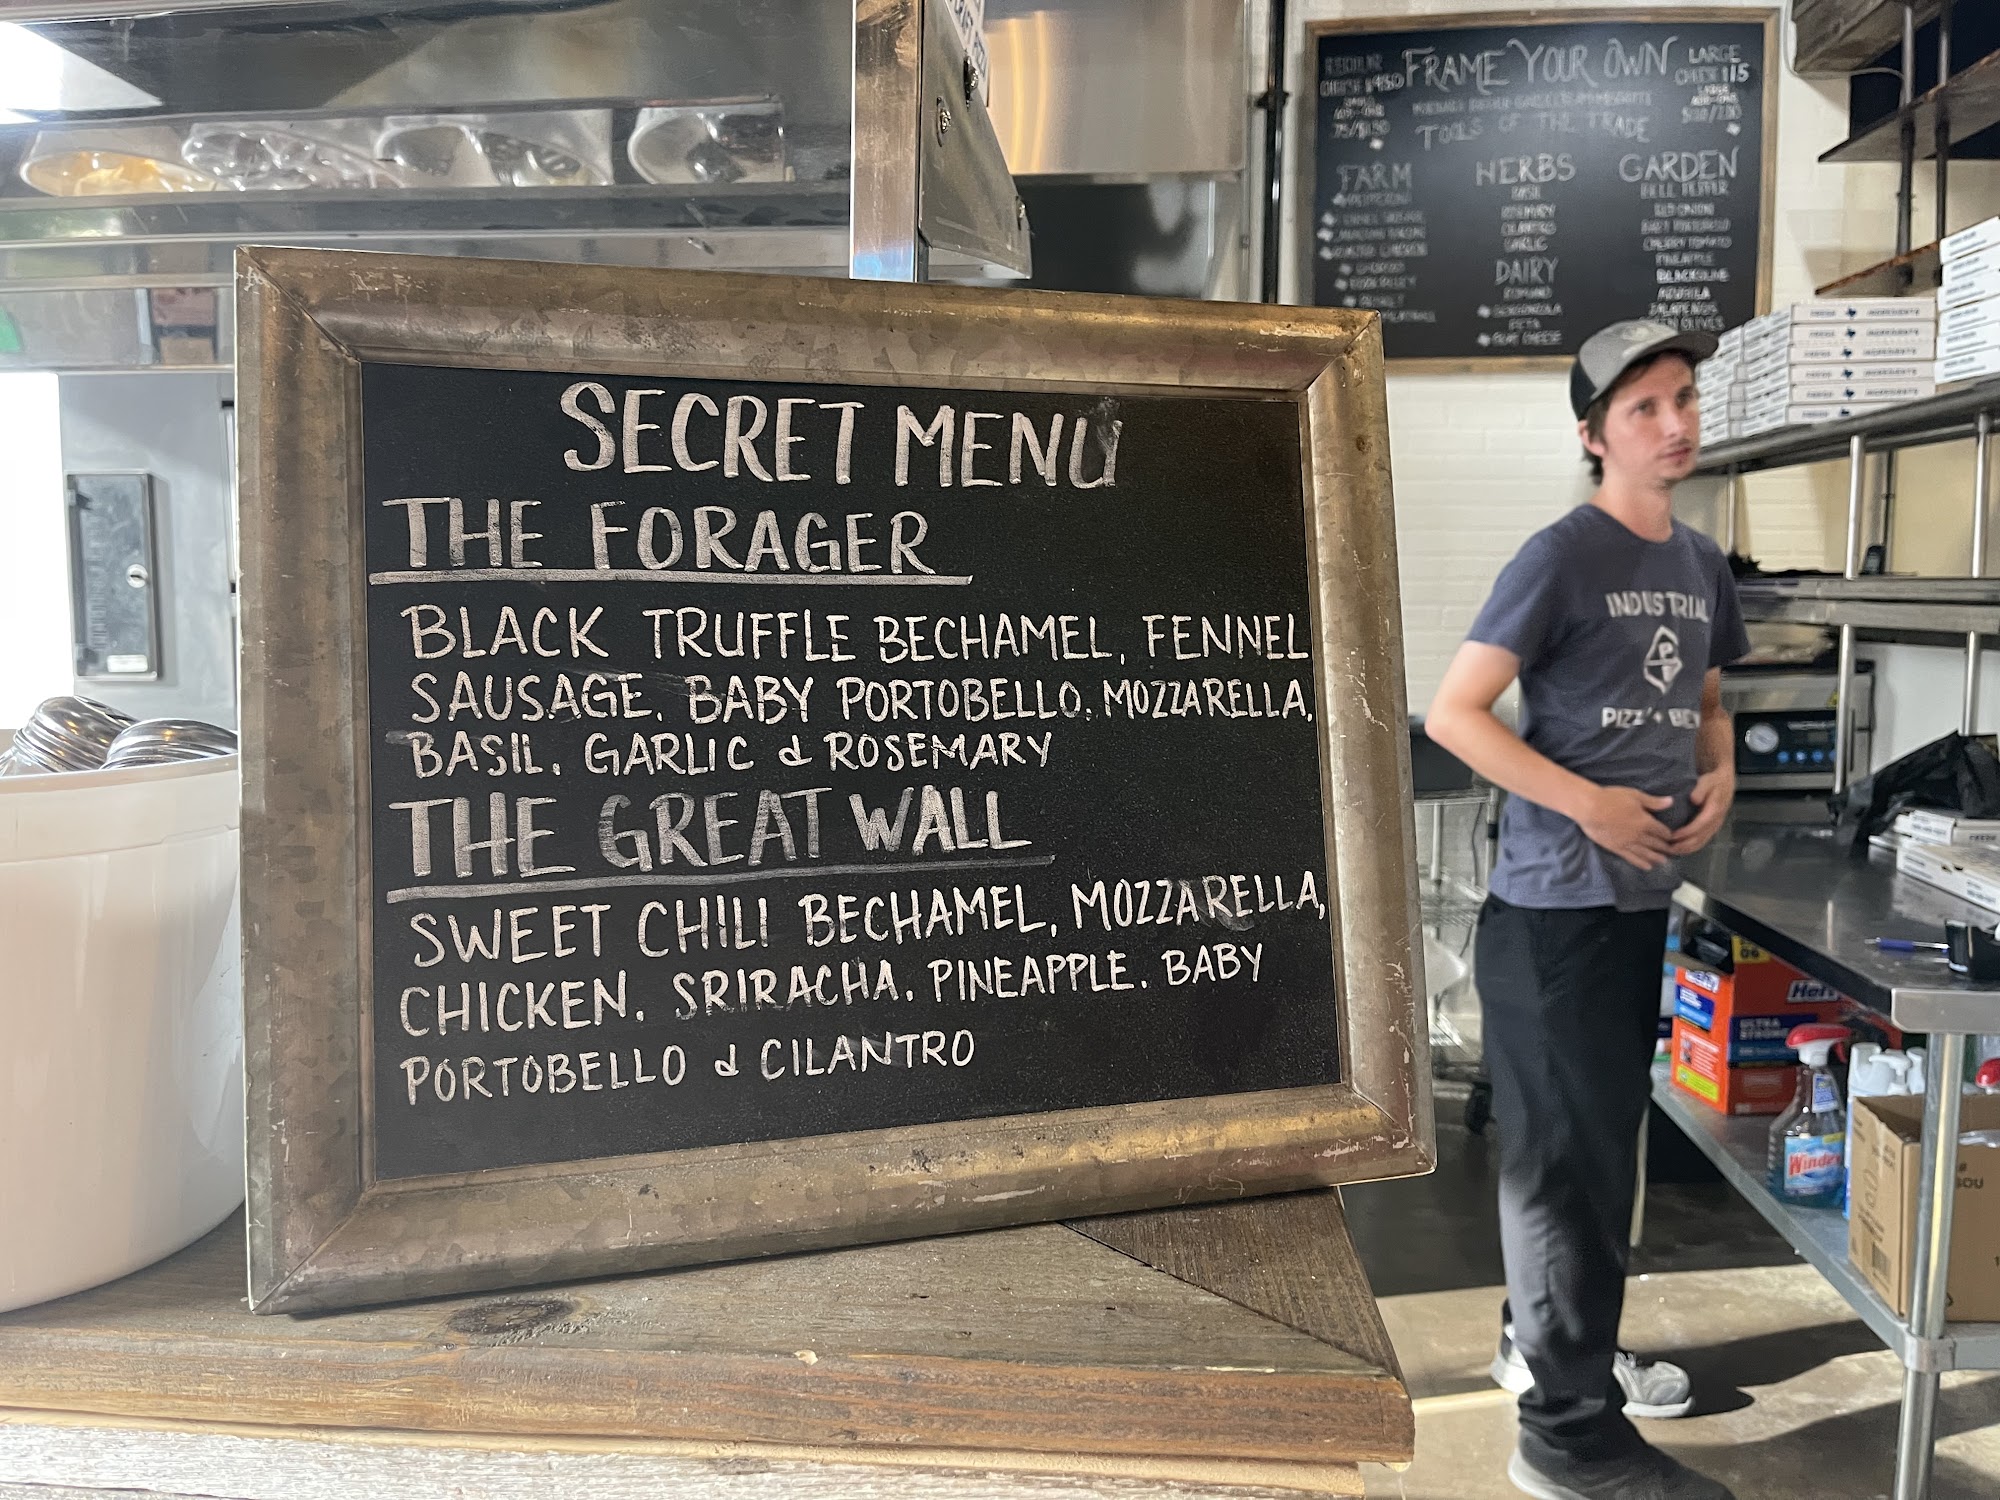 SECRET MENU
THE FORAGER
BLACK TRUFFLE BECHAMEL, FENNEL
SAUSAGE, BABY PORTOBELLO, MOZZARELLA,
BASIL, GARLIC & ROSEMARY
THE GREAT WALL
SWEET CHILI BECHAMEL, MOZZARELLA,
CHICKEN, SRIRACHA, PINEAPPLE, BABY
PORTOBELLO & CILANTRO
FRAME YOUR OWN
TOOLS OF THE TRADE
REGULAR
LARGE
FARM
HERBS
BASIL
ROSEMARY
CILANTRO
GARLIC
DAIRY
ROMANO
GORGONZOLA
FETA
GOAT CHEESE
GARDEN
BELL PEPPER
RED ONION
BABY PORTOBELLO
CHERRY TOMATO
PINEAPPLE
BLACK OLIVE
ARUGULA
JALAPENOS
OLIVES
INDUSTRIAL
P
PIZZA + BREW
Windex
ULTRA
STRONG